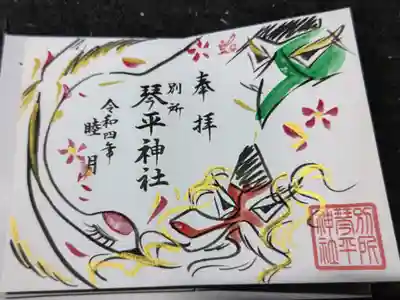 奉拝
別所
琴平神社
令和四年
睦月
別所
琴平
神社